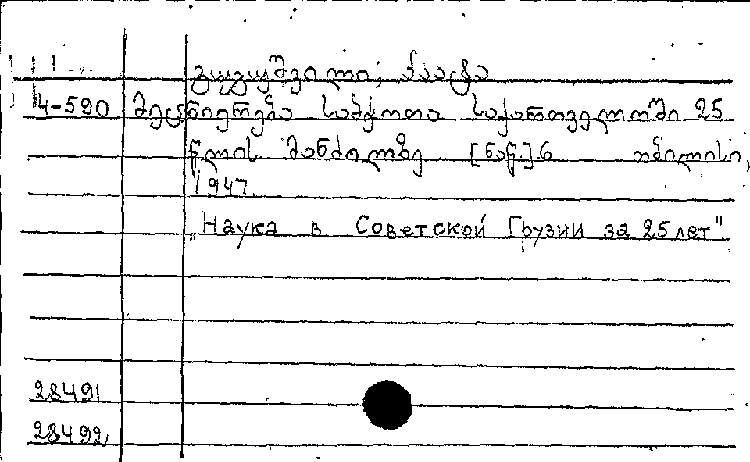 4-520 მეცნიერება საბჭოთა საქართველოში 25
წლის მანძილზე [ნაწ.] 6 თბილისი,
1947
"Наука в Советской Грузии за 25 лет"
28491
28492